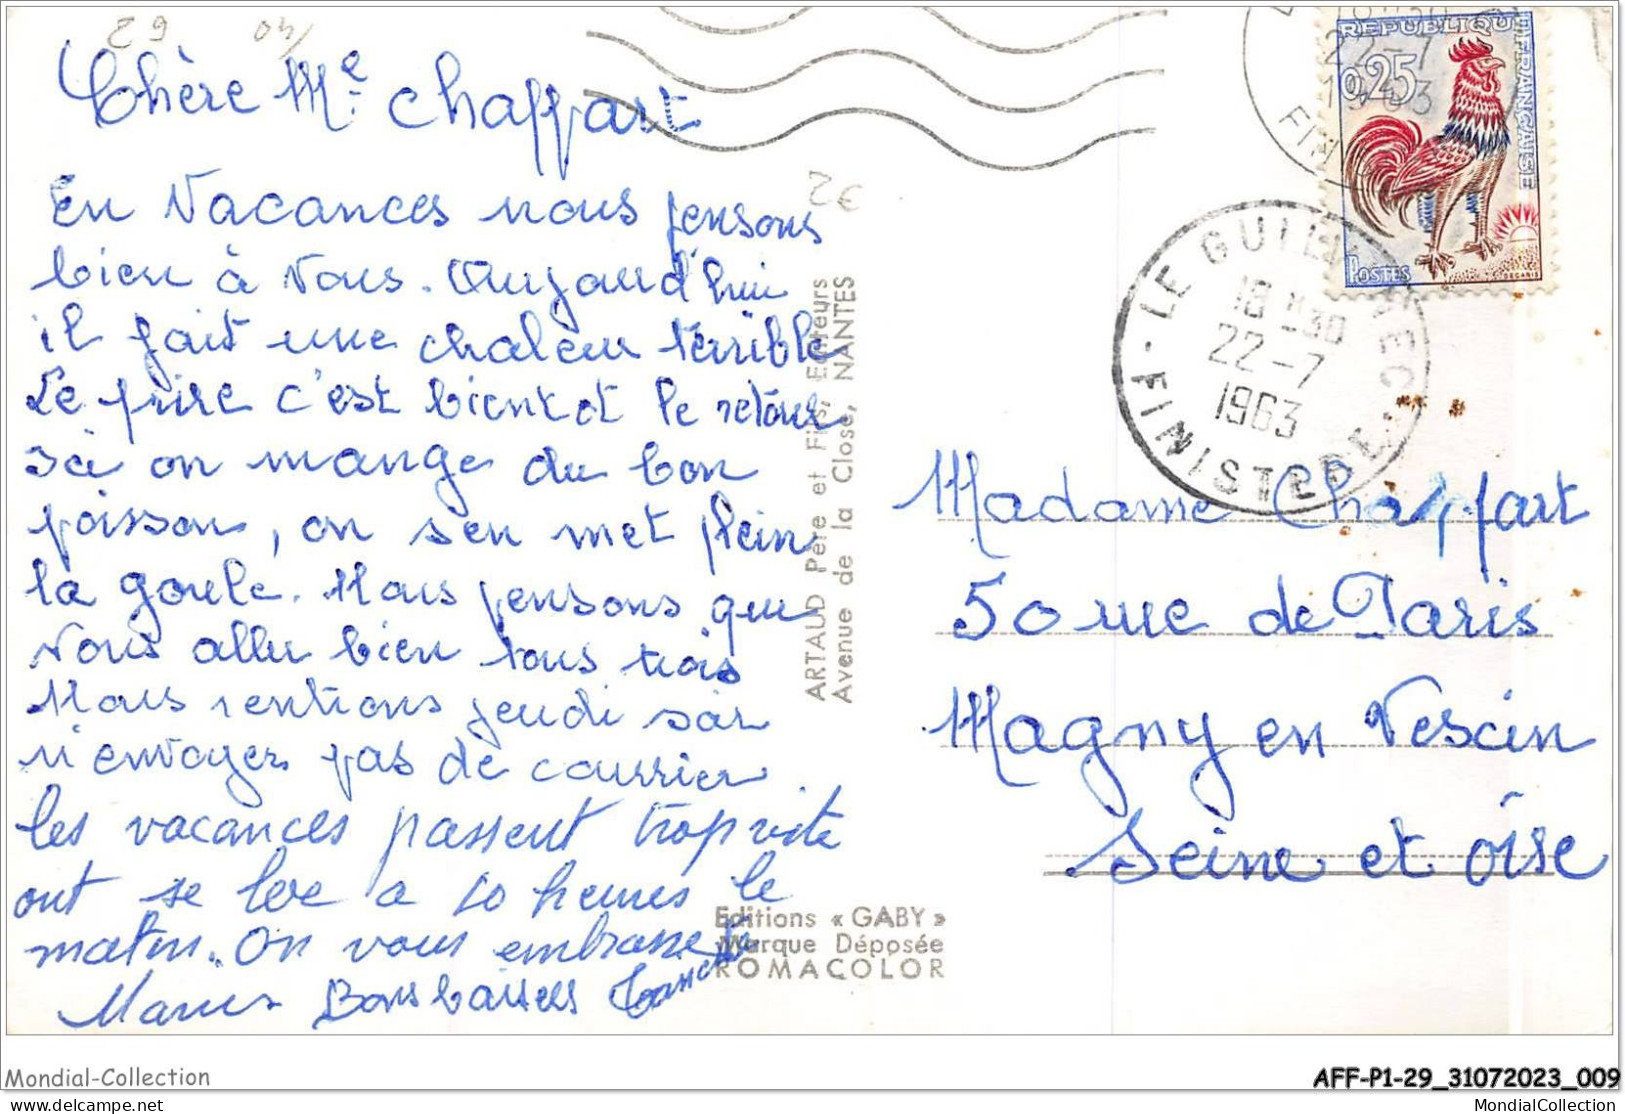 29
Chère Me Chaffart
En Vacances nous pensons
bien à Vous. Aujourd'hui
il fait une chaleur terrible
Le pire c'est bientot le retour
ici on mange du bon
poisson, on s'en met plein
la goule. Nous pensons que
Vous aller bien tous trois
Nous rentrons jeudi soir
n'envoyer pas de courrier
les vacances passent trop vite
ont se lève a 10 heures le
matin. On vous embrasse
Bons baisers
2€
ARTAUD Père et Fils, Editeurs
Avenue de la Close, NANTES
Editions « GABY »
Marque Déposée
ROMACOLOR
22-7
FIN
REPUBLIQUE FRANÇAISE
0,25
POSTES
DECARIS
LE GUILVINEC
18H30
22-7
1963
FINISTERE
Madame Chaffart
50 rue de Paris
Magny en Vescin
Seine et Oise
Mondial-Collection
AFF-P1-29_31072023_009
MondialCollection